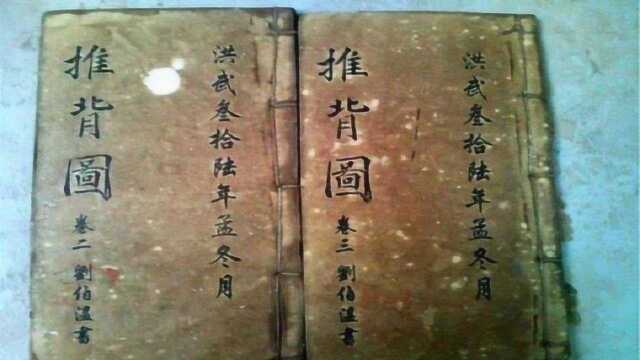 洪武叁拾陸年孟冬月
推背圖
卷二 劉伯温書
洪武叁拾陸年孟冬月
推背圖
卷三 劉伯温書